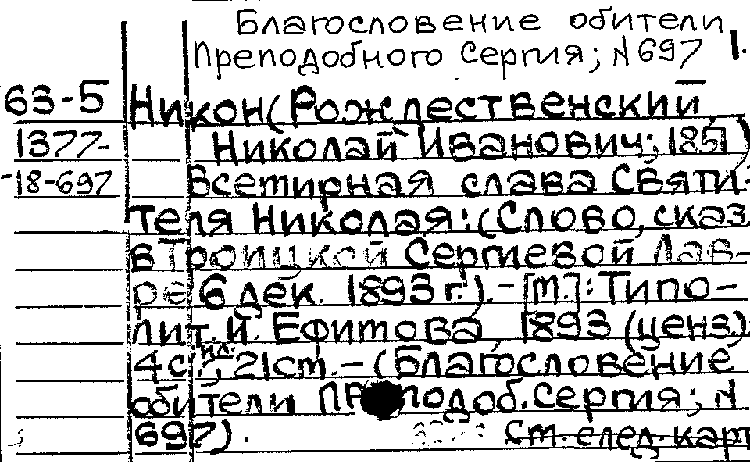 Благословение обители
Преподобного Сергия; N 697 1.
63-5 Никон (Рождественский,
1377- Николай Иванович; 1851)
-18-697 Всемирная слава Святи-
теля Николая: (Слово, сказ.
в Троицкой Сергиевой Лав-
ре 6 дек. 1893 г.). - [М.]: Типо-
лит. И. Ефимова, 1893 (ценз.)
4 с., ил.; 21 см. - (Благословение
обители Преподоб. Сергия; N
697).
См. след. карт